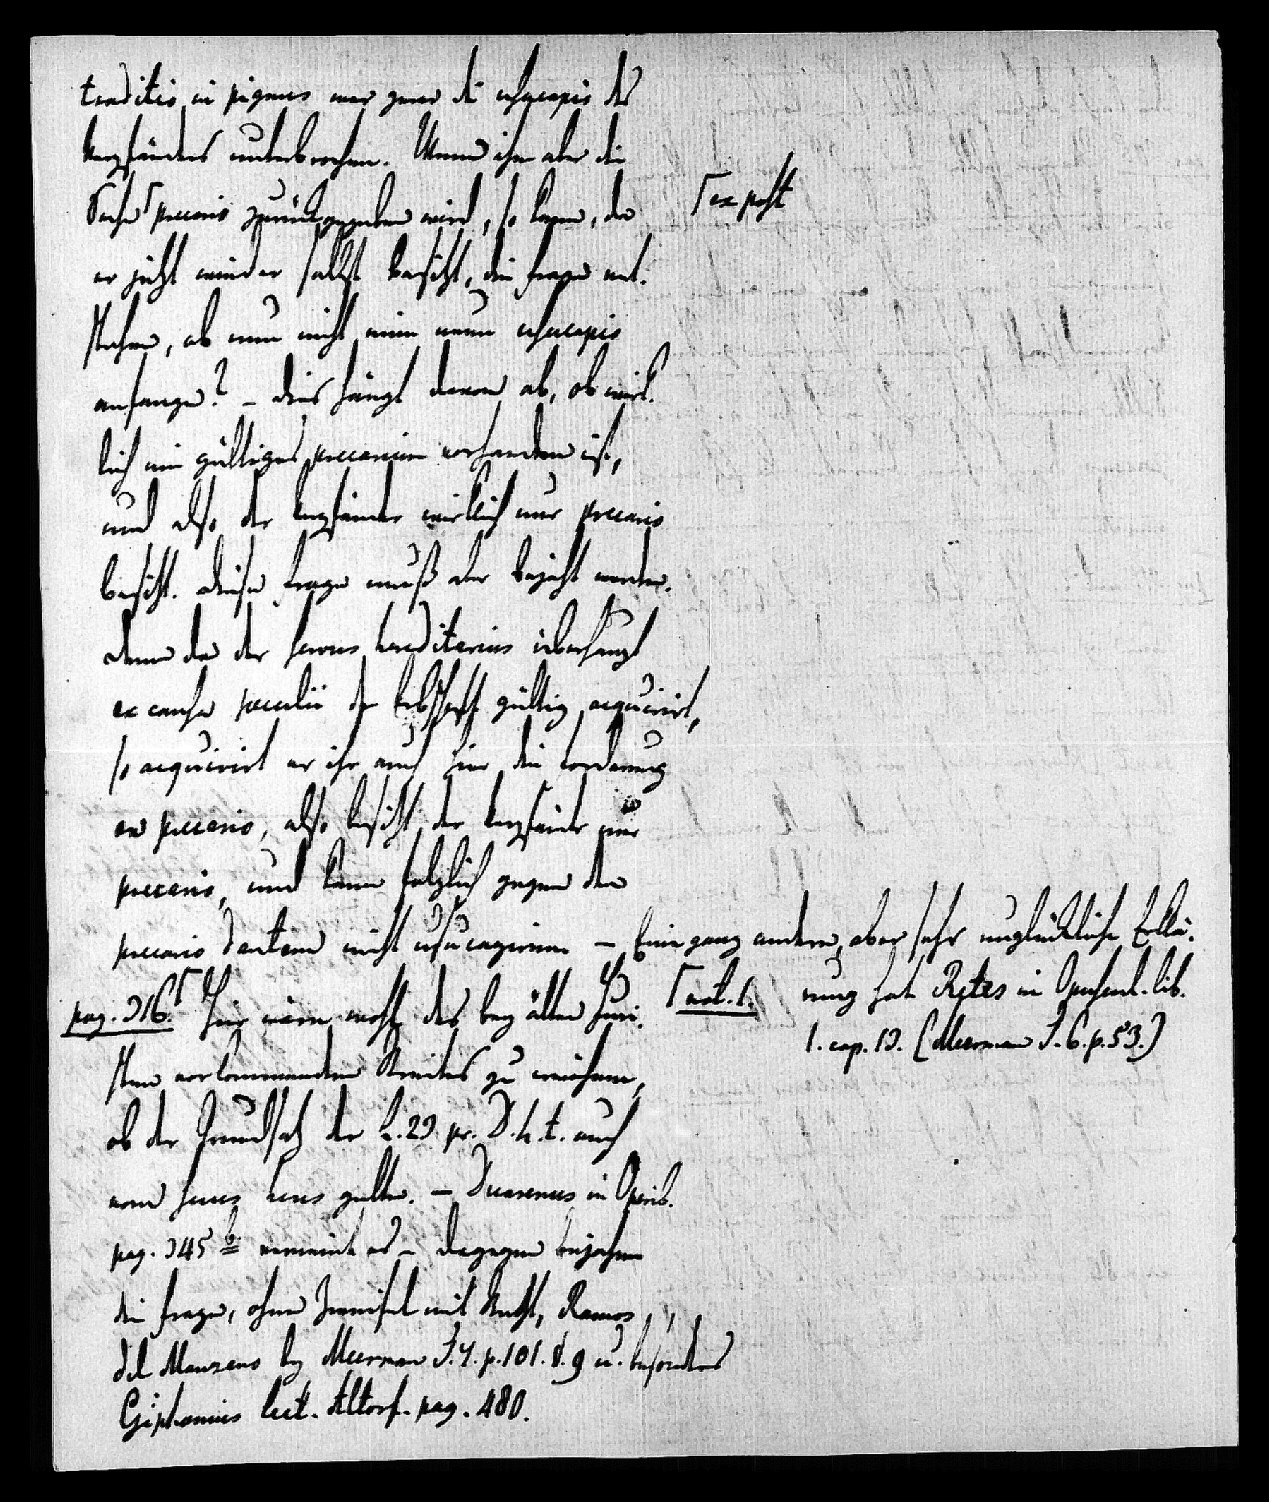 traditio in pignus war zwar die usucapio des
Verpfänders unterbrochen. Wenn ihm aber die
Sache ⌈precario zurückgegeben wird, so kann, da
⌈ex post
er jetzt wieder selbst besitzt, die Frage ent-
stehen, ob nun nicht eine neue usucapio
anfange? – dies hängt davon ab, ob wirk-
lich ein gültiges precarium vorhanden ist,
und also der Verpfänder wirklich nur precario
besitzt. Diese Frage muß aber bejaht werden.
denn da der servus hereditarius überhaupt
ex causa peculii der Erbschaft gültig acquirirt,
so acquirirt er ihr auch hier die Forderung
ex precario, also besitzt der Verpfänder nur
precario, und kann folglich gegen den
precario dantem nicht usucapiren – Eine ganz andere, aber sehr unglückliche Erklä-
rung hat Retes in Opuscul. lib.
1. cap. 13. (Meerman T. 6. p. 53.)
pag. 316.⌈ Hier wäre wohl des bey ältern Juri-
⌈not. 1.
sten vorkommenden Streites zu erwähnen,
ob der Grundsatz der L. 29. pr. D. h. t. auch
vom suus heres gelte. – Duarenus in Oprib.
pag. 345 b verneint es – dagegen bejahen
die Frage, ohne Zweifel mit Recht, Ramos
del Manzano by Meerman T. 7. p. 101. §. 9 u. besonders
Giphanius lect. Altorf. pag. 480.